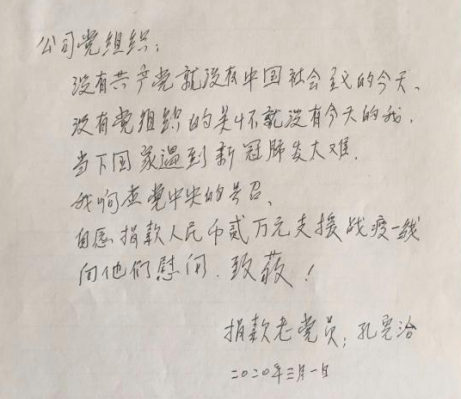 公司党组织：
没有共产党就没有中国社会主义的今天、
没有党组织的关怀就没有今天的我.
当下国家遇到新冠肺炎大难.
我响应党中央的号召、
自愿捐款人民币贰万元支援战疫一线
向他们慰问.致敬！
捐款老党员；孔宪洽
二〇二〇年三月一日